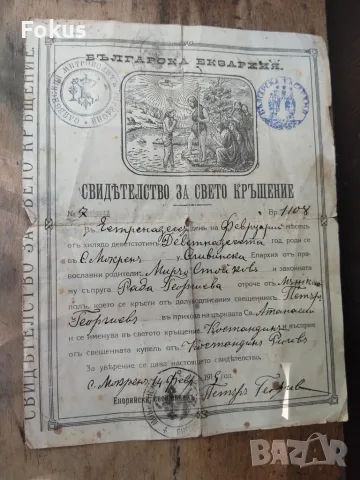 Fokus
БЪЛГАРСКА ЕКЗАРХИЯ.
СВИДѢТЕЛСТВО ЗА СВЕТО КРЪЩЕНИЕ
СВИДѢТЕЛСТВО ЗА СВЕТО КРЪЩЕНИЕ
№ 7 Бр. 1108
Въ Четринадесети день на Февруарий мѣсецъ
отъ хилядо деветстотинъ Деветнадесета год. роди се
въ с. Мокренъ у Сливенска Епархия отъ пра-
вославни родители: Мирчо Стойковъ и законната
му съпруга Рада Георгиева отроче отъ Мѫжки
полъ, което се кръсти отъ долуподписания священникъ Петъръ
Георгиевъ въ прихода на църквата Св. Атанасий
и се именува въ светото кръщение Костандинъ и възприе
отъ священната купель отъ Костандинъ
За увѣрение се дава настоящето свидѣтелство.
с. Мокренъ 14 Февр. 191 год.
Енорийски священникъ Петъръ Георгиев
BAZAR